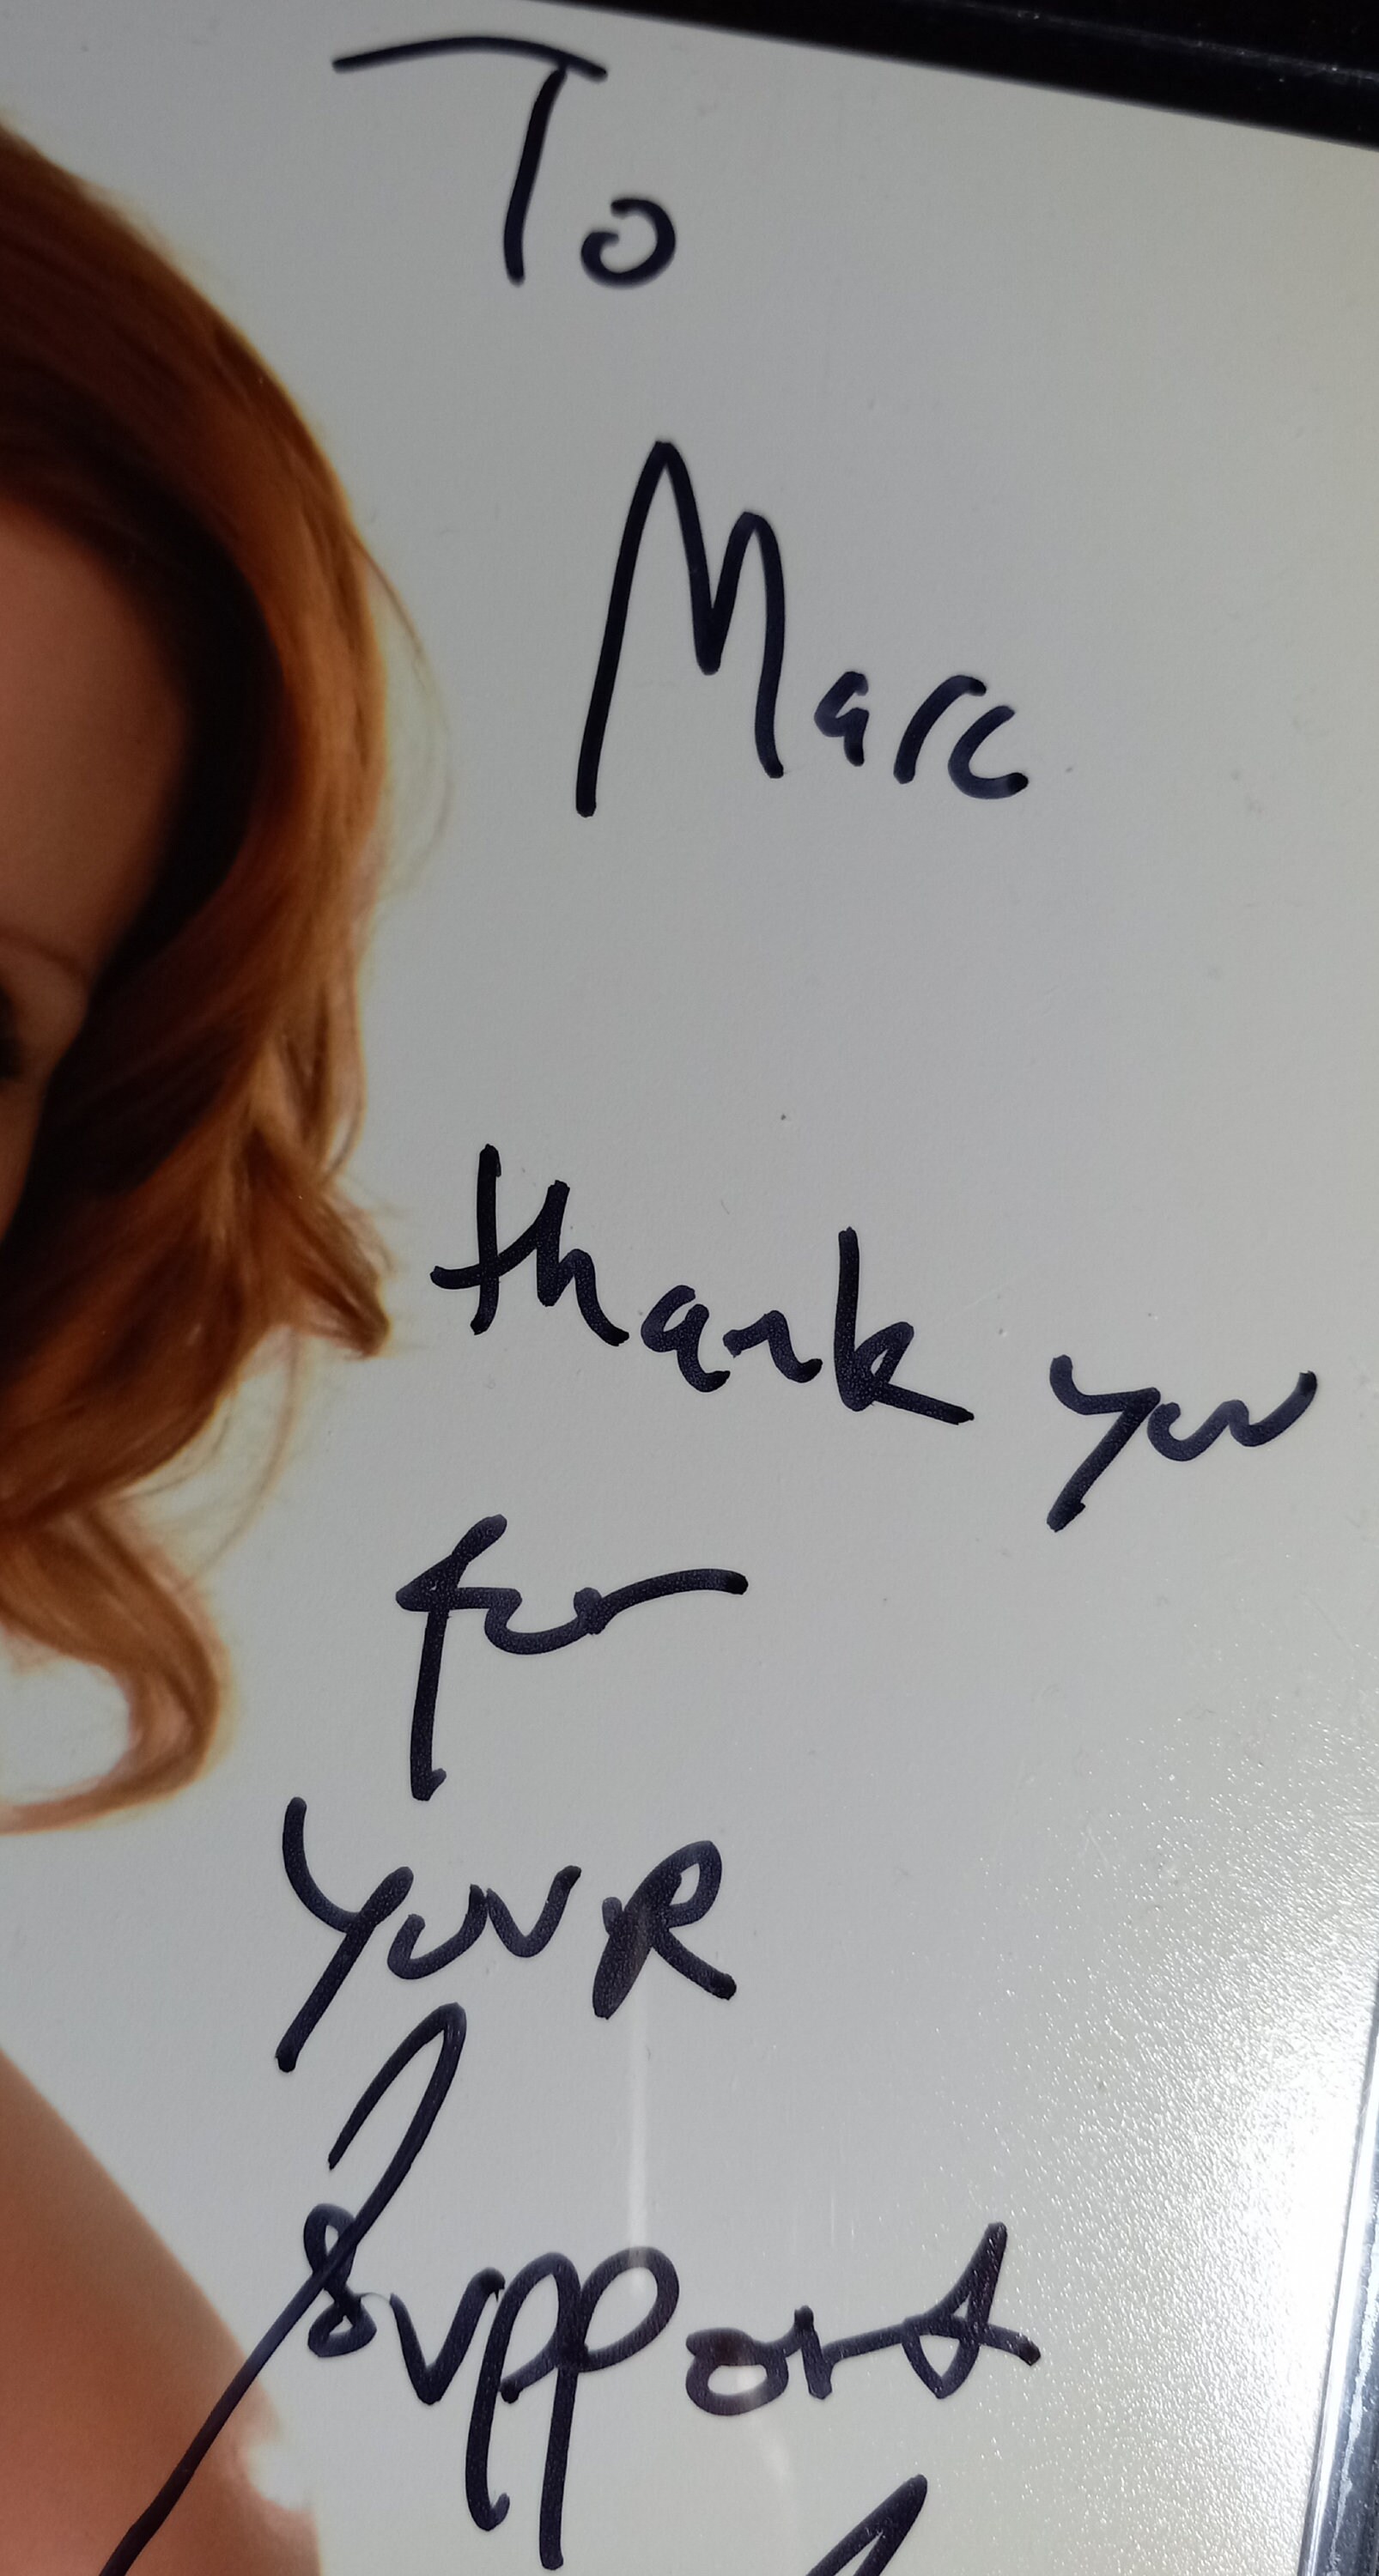 To
Marc
thank you
for
youR
support